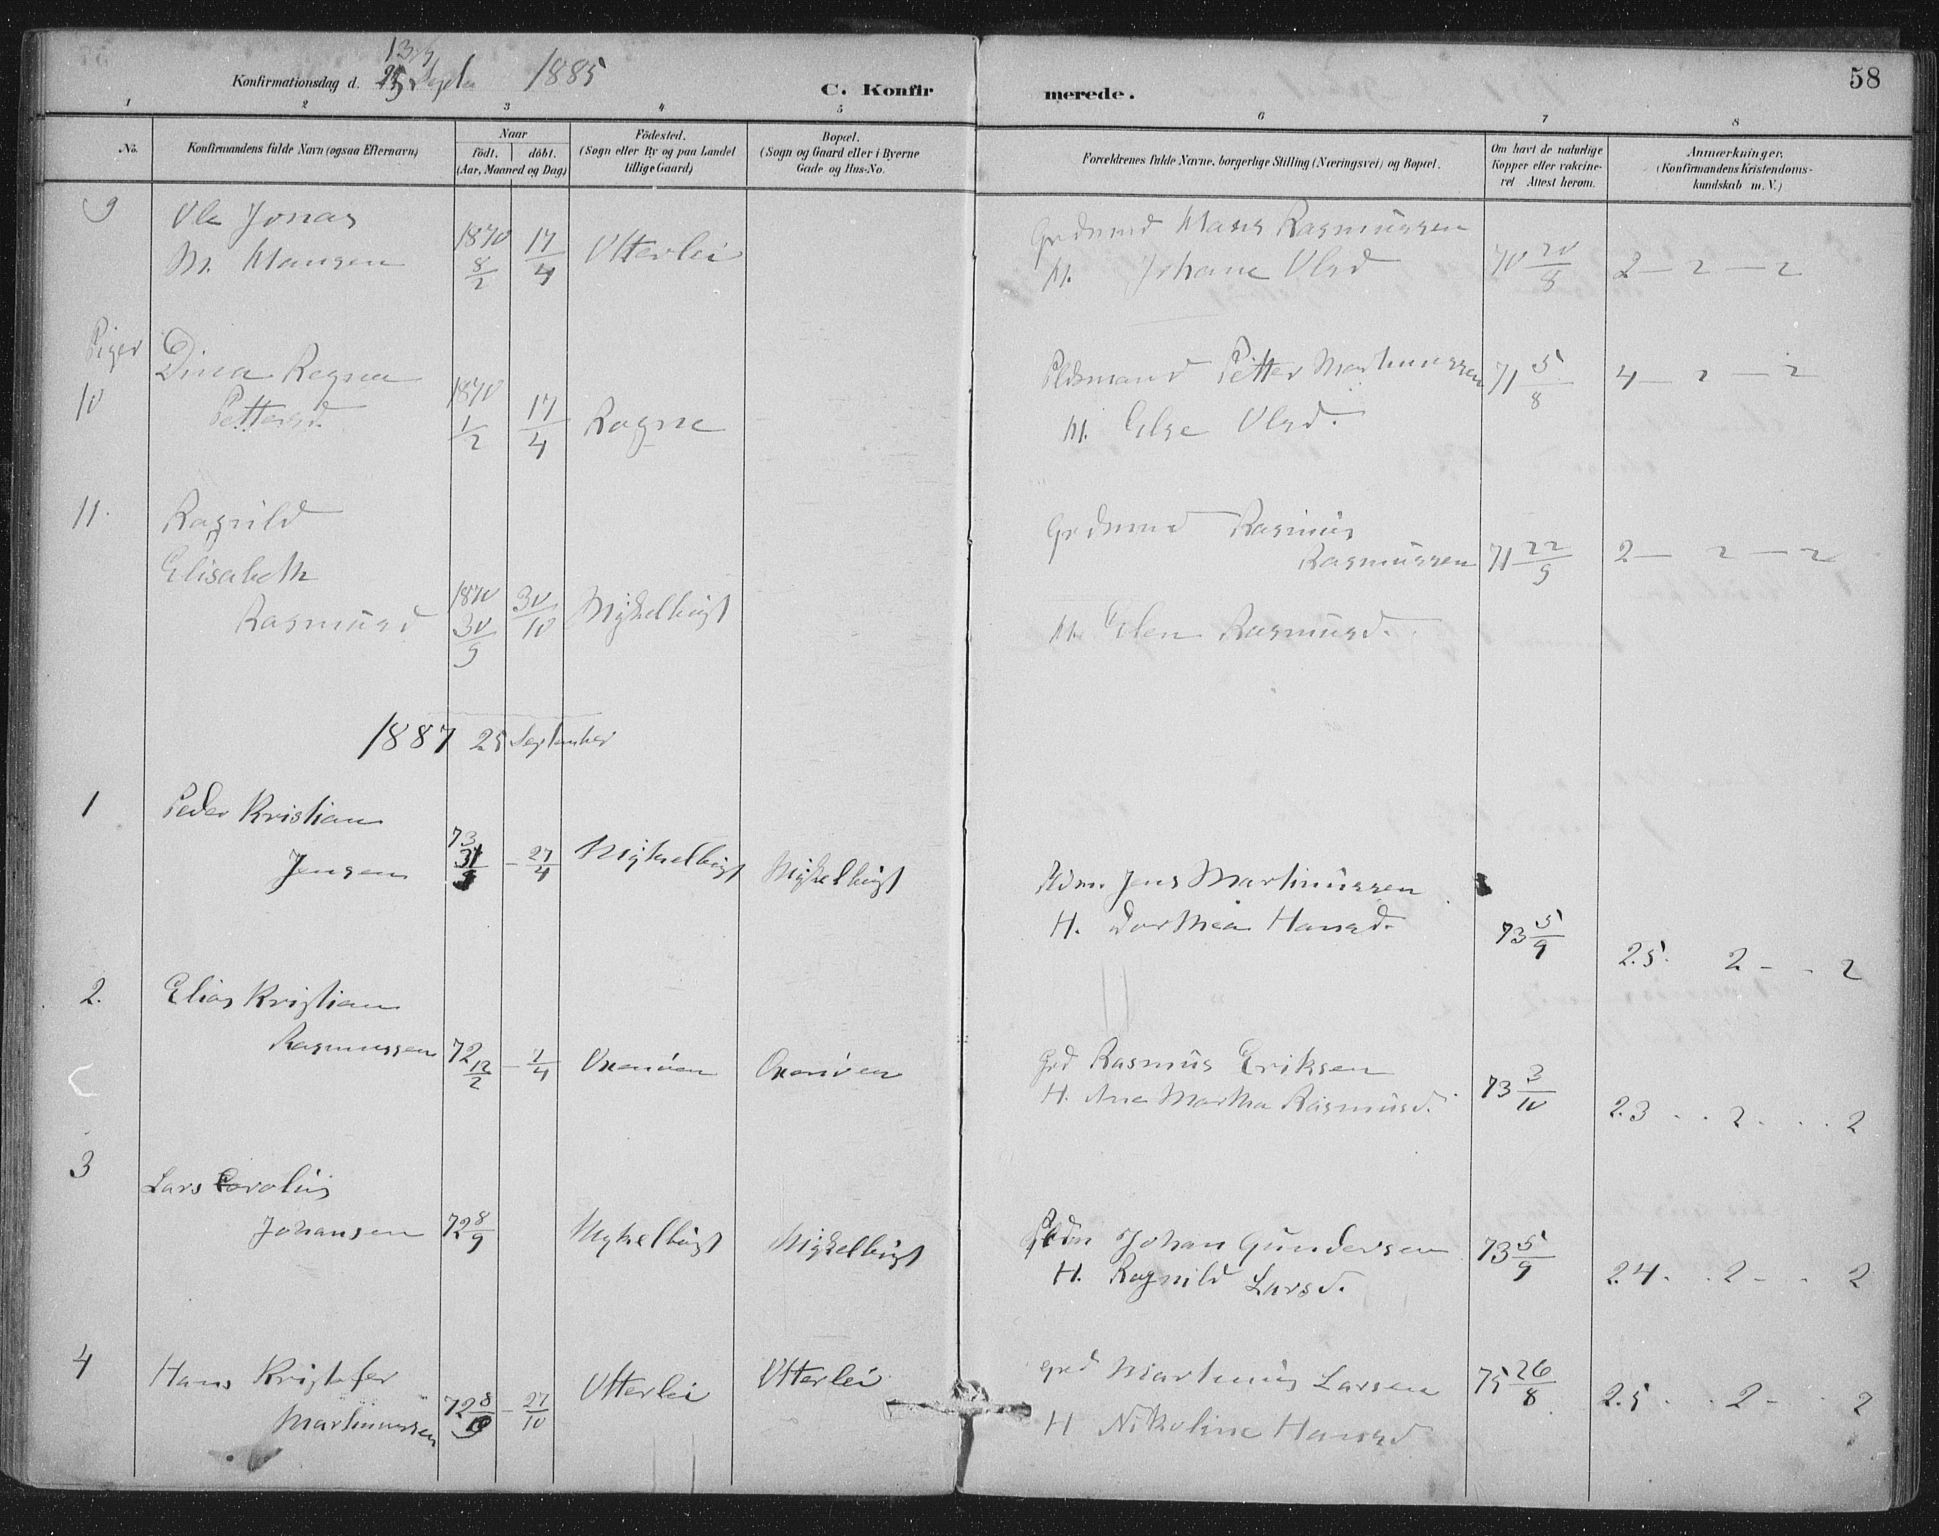 58
Konfirmationsdag d. 13/9 Septbr 1885
C. Konfirmerede.
1 2 3 4 5 6 7 8
No. Konfirmandens fulde Navn (ogsaa Efternavn) Naar födt. döbt. (Aar, Maaned og Dag) Födested. (Sogn eller By og paa Landet tillige Gaard) Bopæl. (Sogn og Gaard eller i Byerne Gade og Hus-No. Forældrenes fulde Navne, borgerlige Stilling (Næringsvei) og Bopæl. Om havt de naturlige Kopper eller vakcineret Attest herom. Anmærkninger. (Konfirmandens Kristendomskundskab m. V.)
9 Ole Jonas 1870 17/4 Utterlei Grdmnd Hans Rasmussen 70 20/8 2 - 2 - 2
M. Hansen 8/2 H. Johane Olsd
Piger
10 Dina Regna 1870 17/4 Rogne Pldsmand Petter Martinussen 71 5/8 4 - 2 - 2
Pettersd. 1/2 H. Else Olsd.
11. Ragnild Grdmnd Rasmus
Elisabeth Rasmussen 71 22/9 2 - 2 - 2
Rasmusd 1870 30/9 30/10 Mykelbugt H. Elen Rasmusd.
1887 25 September
1 Peder Kristian
Jensen 73 - 27/4 Mykelbugt Mykelbugt Pldm. Jens Martinussen
H. Dorthea Hansd. 73 5/9 2.5. 2 - - 2
2. Elias Kristian
Rasmussen 72 12/2 - 7/4 Oxenöen Oxenöen Grd Rasmus Eriksen 73 3/10 2.3 . . 2 . . . 2
H. Ane Martha Rasmusd.
3 Lars Carolius
Johansen 72 8/9 Mykelbugt Mykelbugt Pldm Johan Gundersen 73 5/9 2.4 . . 2 - . 2
H. Ragnild Larsd.
4 Hans Kristofer Utterlei Utterlei grd Martinus Larsen 75 26/8 2.5 . . 2 - . 2
Martinussen 72 - 27/10 H Nikoline Hansd